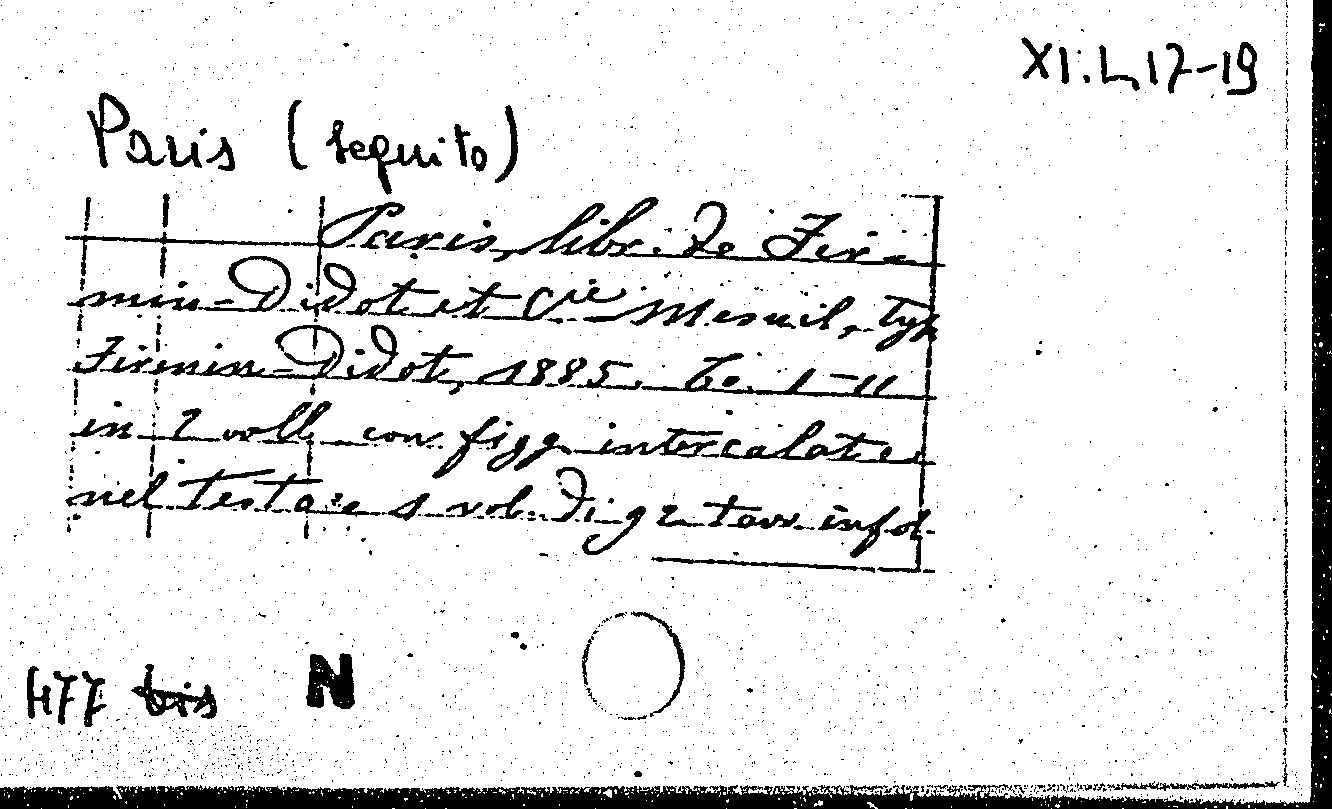 XI. L, 17-19
Paris (seguito)
Paris, libr. de Fir-
min-Didot et Cie Mesnil, typ
Firmin-Didot, 1885. To. I-II
in 2 voll. con figg. intercalate
nel testo: e 1 vol. di 92 tavv. in fol.
477 bis N